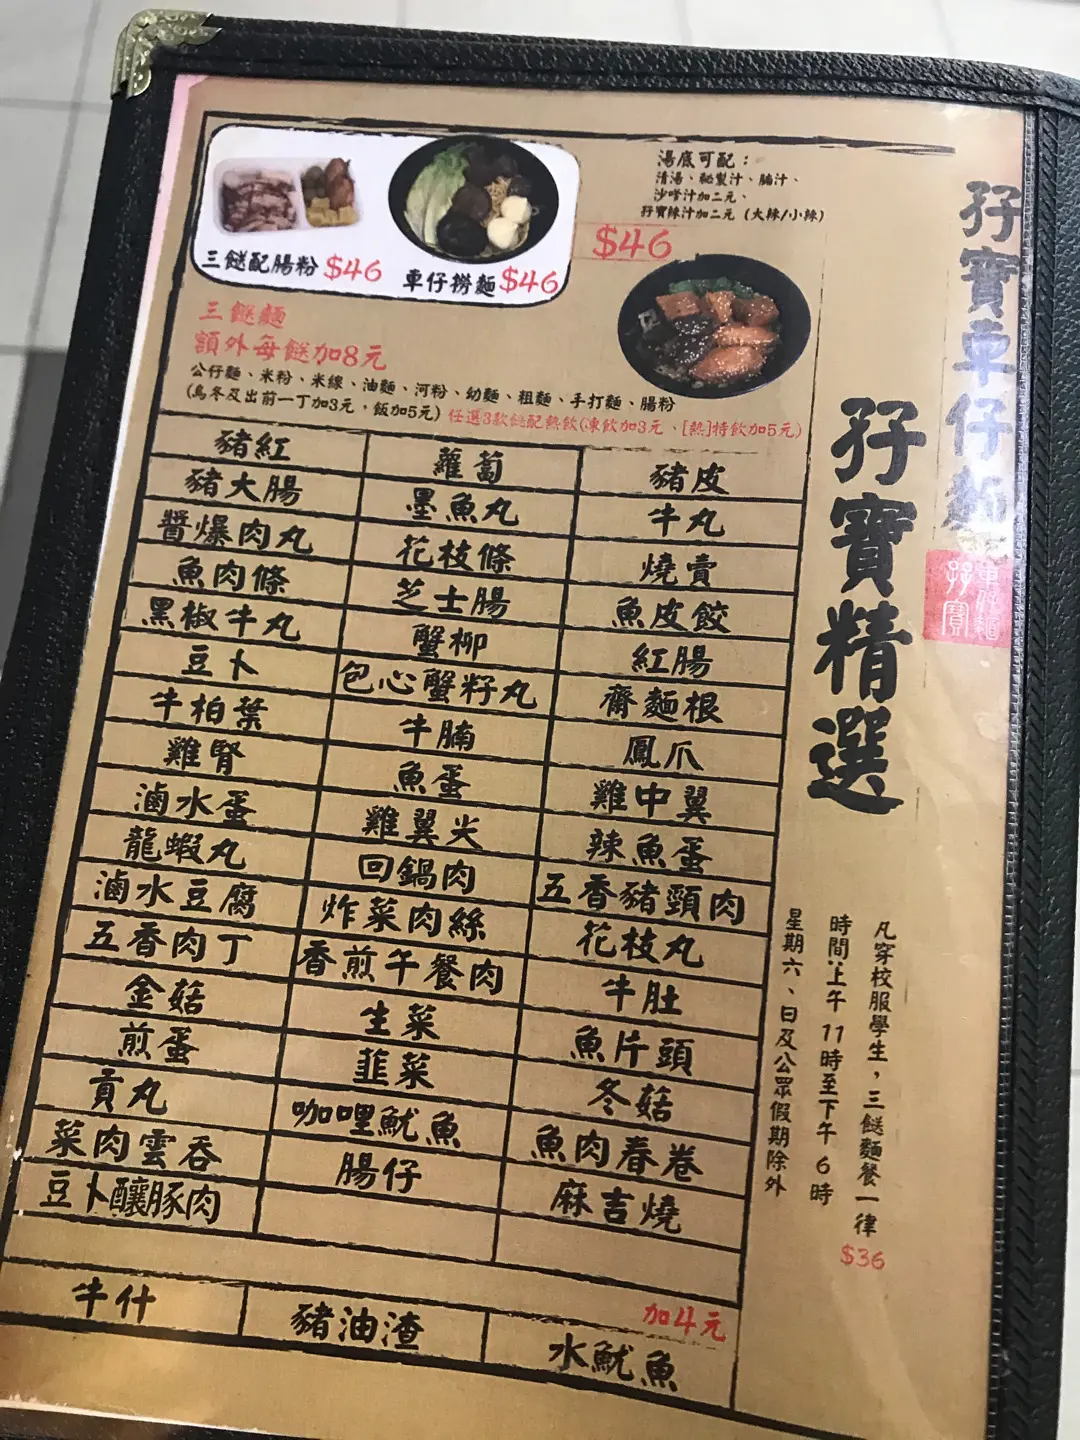 三餸配腸粉 $46
車仔撈麵 $46
湯底可配：
清湯、秘製汁、腩汁、
沙嗲汁加二元、
孖寶辣汁加二元 (大辣/小辣)
$46
三餸麵
額外每餸加8元
公仔麵、米粉、米線、油麵、河粉、幼麵、粗麵、手打麵、腸粉
(烏冬及出前一丁加3元，飯加5元) 任選3款餸配熱飲(凍飲加3元、[熱]特飲加5元)
豬紅 蘿蔔 豬皮
豬大腸 墨魚丸 牛丸
醬爆肉丸 花枝條 燒賣
魚肉條 芝士腸 魚皮餃
黑椒牛丸 蟹柳 紅腸
豆卜 包心蟹籽丸 齋麵根
牛柏葉 牛腩 鳳爪
雞腎 魚蛋 雞中翼
滷水蛋 雞翼尖 辣魚蛋
龍蝦丸 回鍋肉 五香豬頸肉
滷水豆腐 炸菜肉絲 花枝丸
五香肉丁 香煎午餐肉 牛肚
金菇 生菜 魚片頭
煎蛋 韮菜 冬菇
貢丸 咖哩魷魚 魚肉春卷
菜肉雲吞 腸仔 麻吉燒
豆卜釀豚肉
加4元
牛什 豬油渣 水魷魚
孖寶車仔麵
孖寶
車仔麵
孖寶精選
凡穿校服學生，三餸麵餐一律 $36
時間:上午11時至下午6時
星期六、日及公眾假期除外